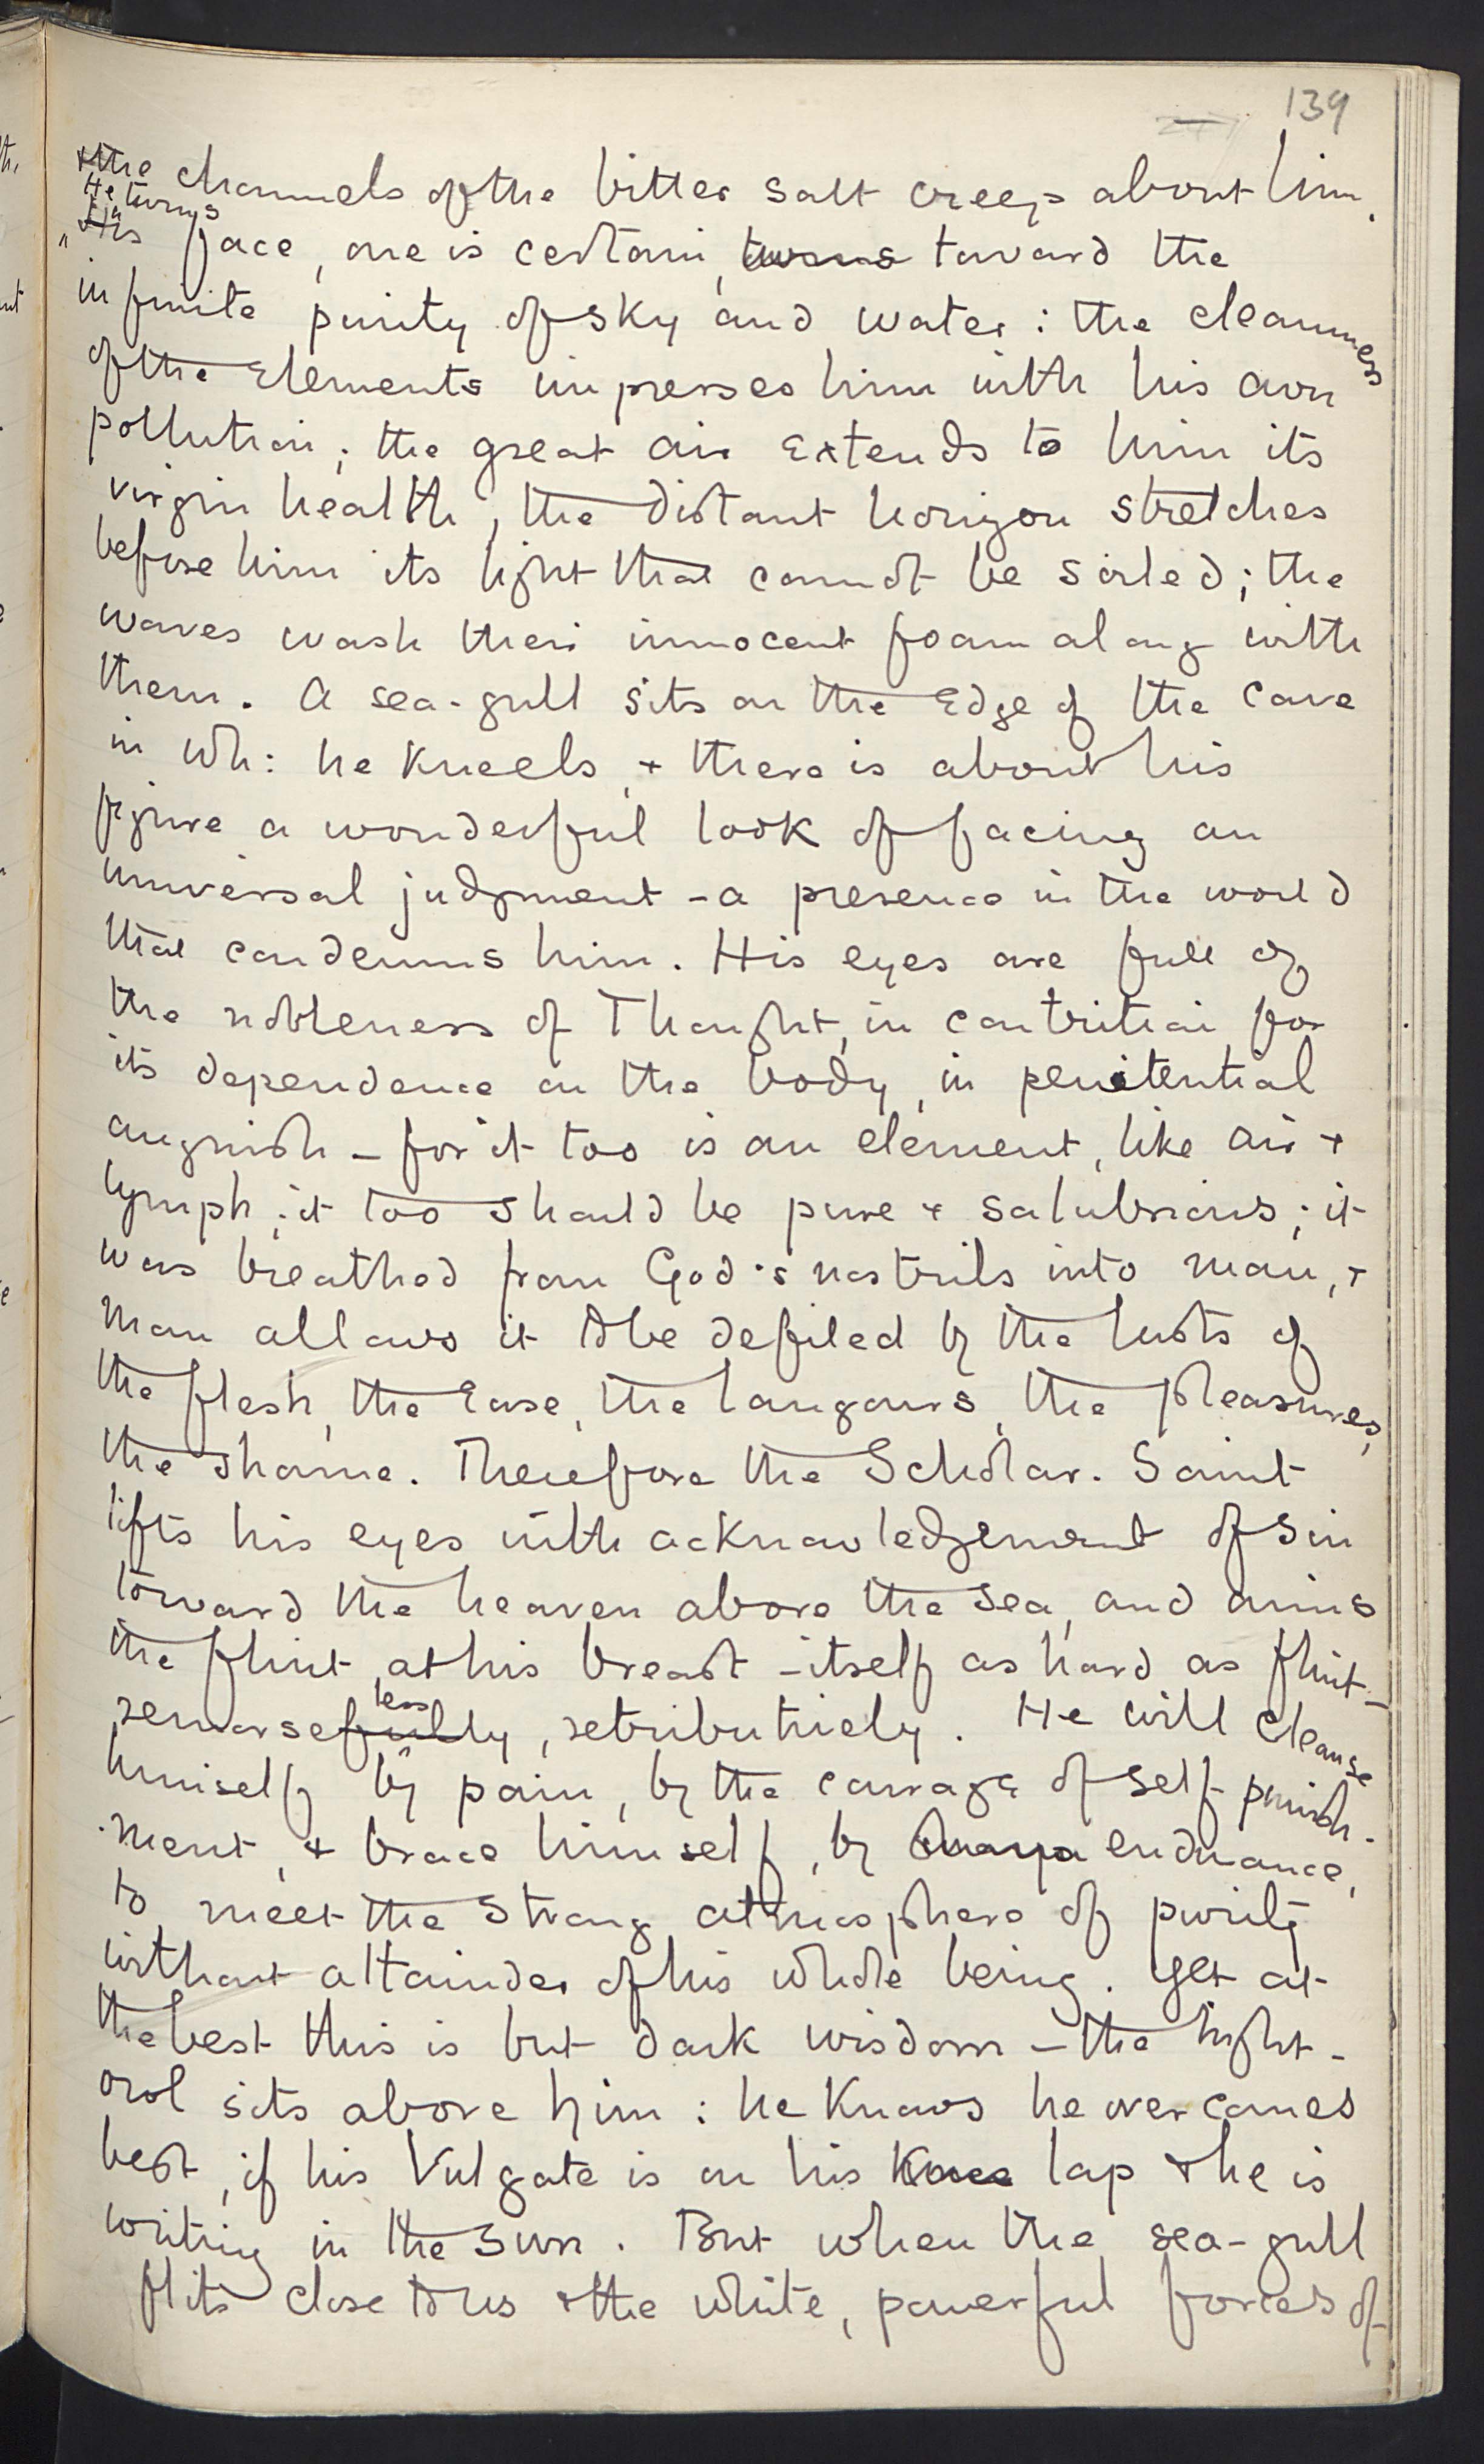 139
& the channels of the bitter salt creep about him.
He turns
His face, one is certain, turns toward the
infinite purity of sky and water: the cleanness
of the Elements impresses him with his own
pollution; the great air extends to him its
virgin health, the distant horizon stretches
before him its light that cannot be soiled; the
waves wash their innocent foam along with
them. A sea-gull sits on the Edge of the cave
in wh: he kneels, & there is about his
figure a wonderful look of facing an
universal judgment - a presence in the world
that condemns him. His eyes are full of
the nobleness of Thought, in contrition for
its dependence on the body, in penitential
anguish - for it too is an element, like air &
lymph; it too should be pure & salubrious; it
was breathed from God's nostrils into man, &
man allows it to be defiled by the lusts of
the flesh, the Ease, the langours, the pleasures,
the shame. Therefore the Scholar-Saint
lifts his eyes with acknowledgement of sin
toward the heaven above the sea, and aims
the flint at his breast - itself as hard as flint -
less
remorsefully, retributively. He will cleanse
himself by pain, by the courage of self-punish-
ment, & brace himself, by endurance,
to meet the strong atmosphere of purity
without attainder of his whole being. Yet at
the best this is but dark wisdom - the night-
owl sits above him: he knows he overcomes
best, if his Vulgate is on his knee lap & he is
writing in the sun. But when the sea-gull
flits close to us & the white, powerful forces of